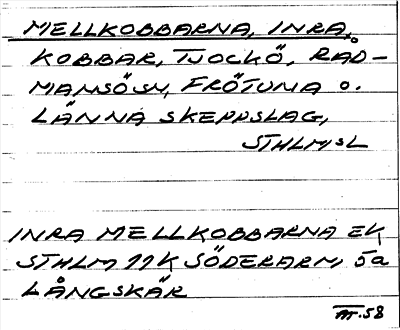 MELLKOBBARNA, INRA,
KOBBAR, TJOCKÖ, RÅD-
MANSÖSN, FRÖTUNA O.
LÄNNA SKEPPSLAG,
STHLMSL
INRA MELLKOBBARNA EK
STHLM 11K SÖDERARM 5a
LÅNGSKÄR
III.58